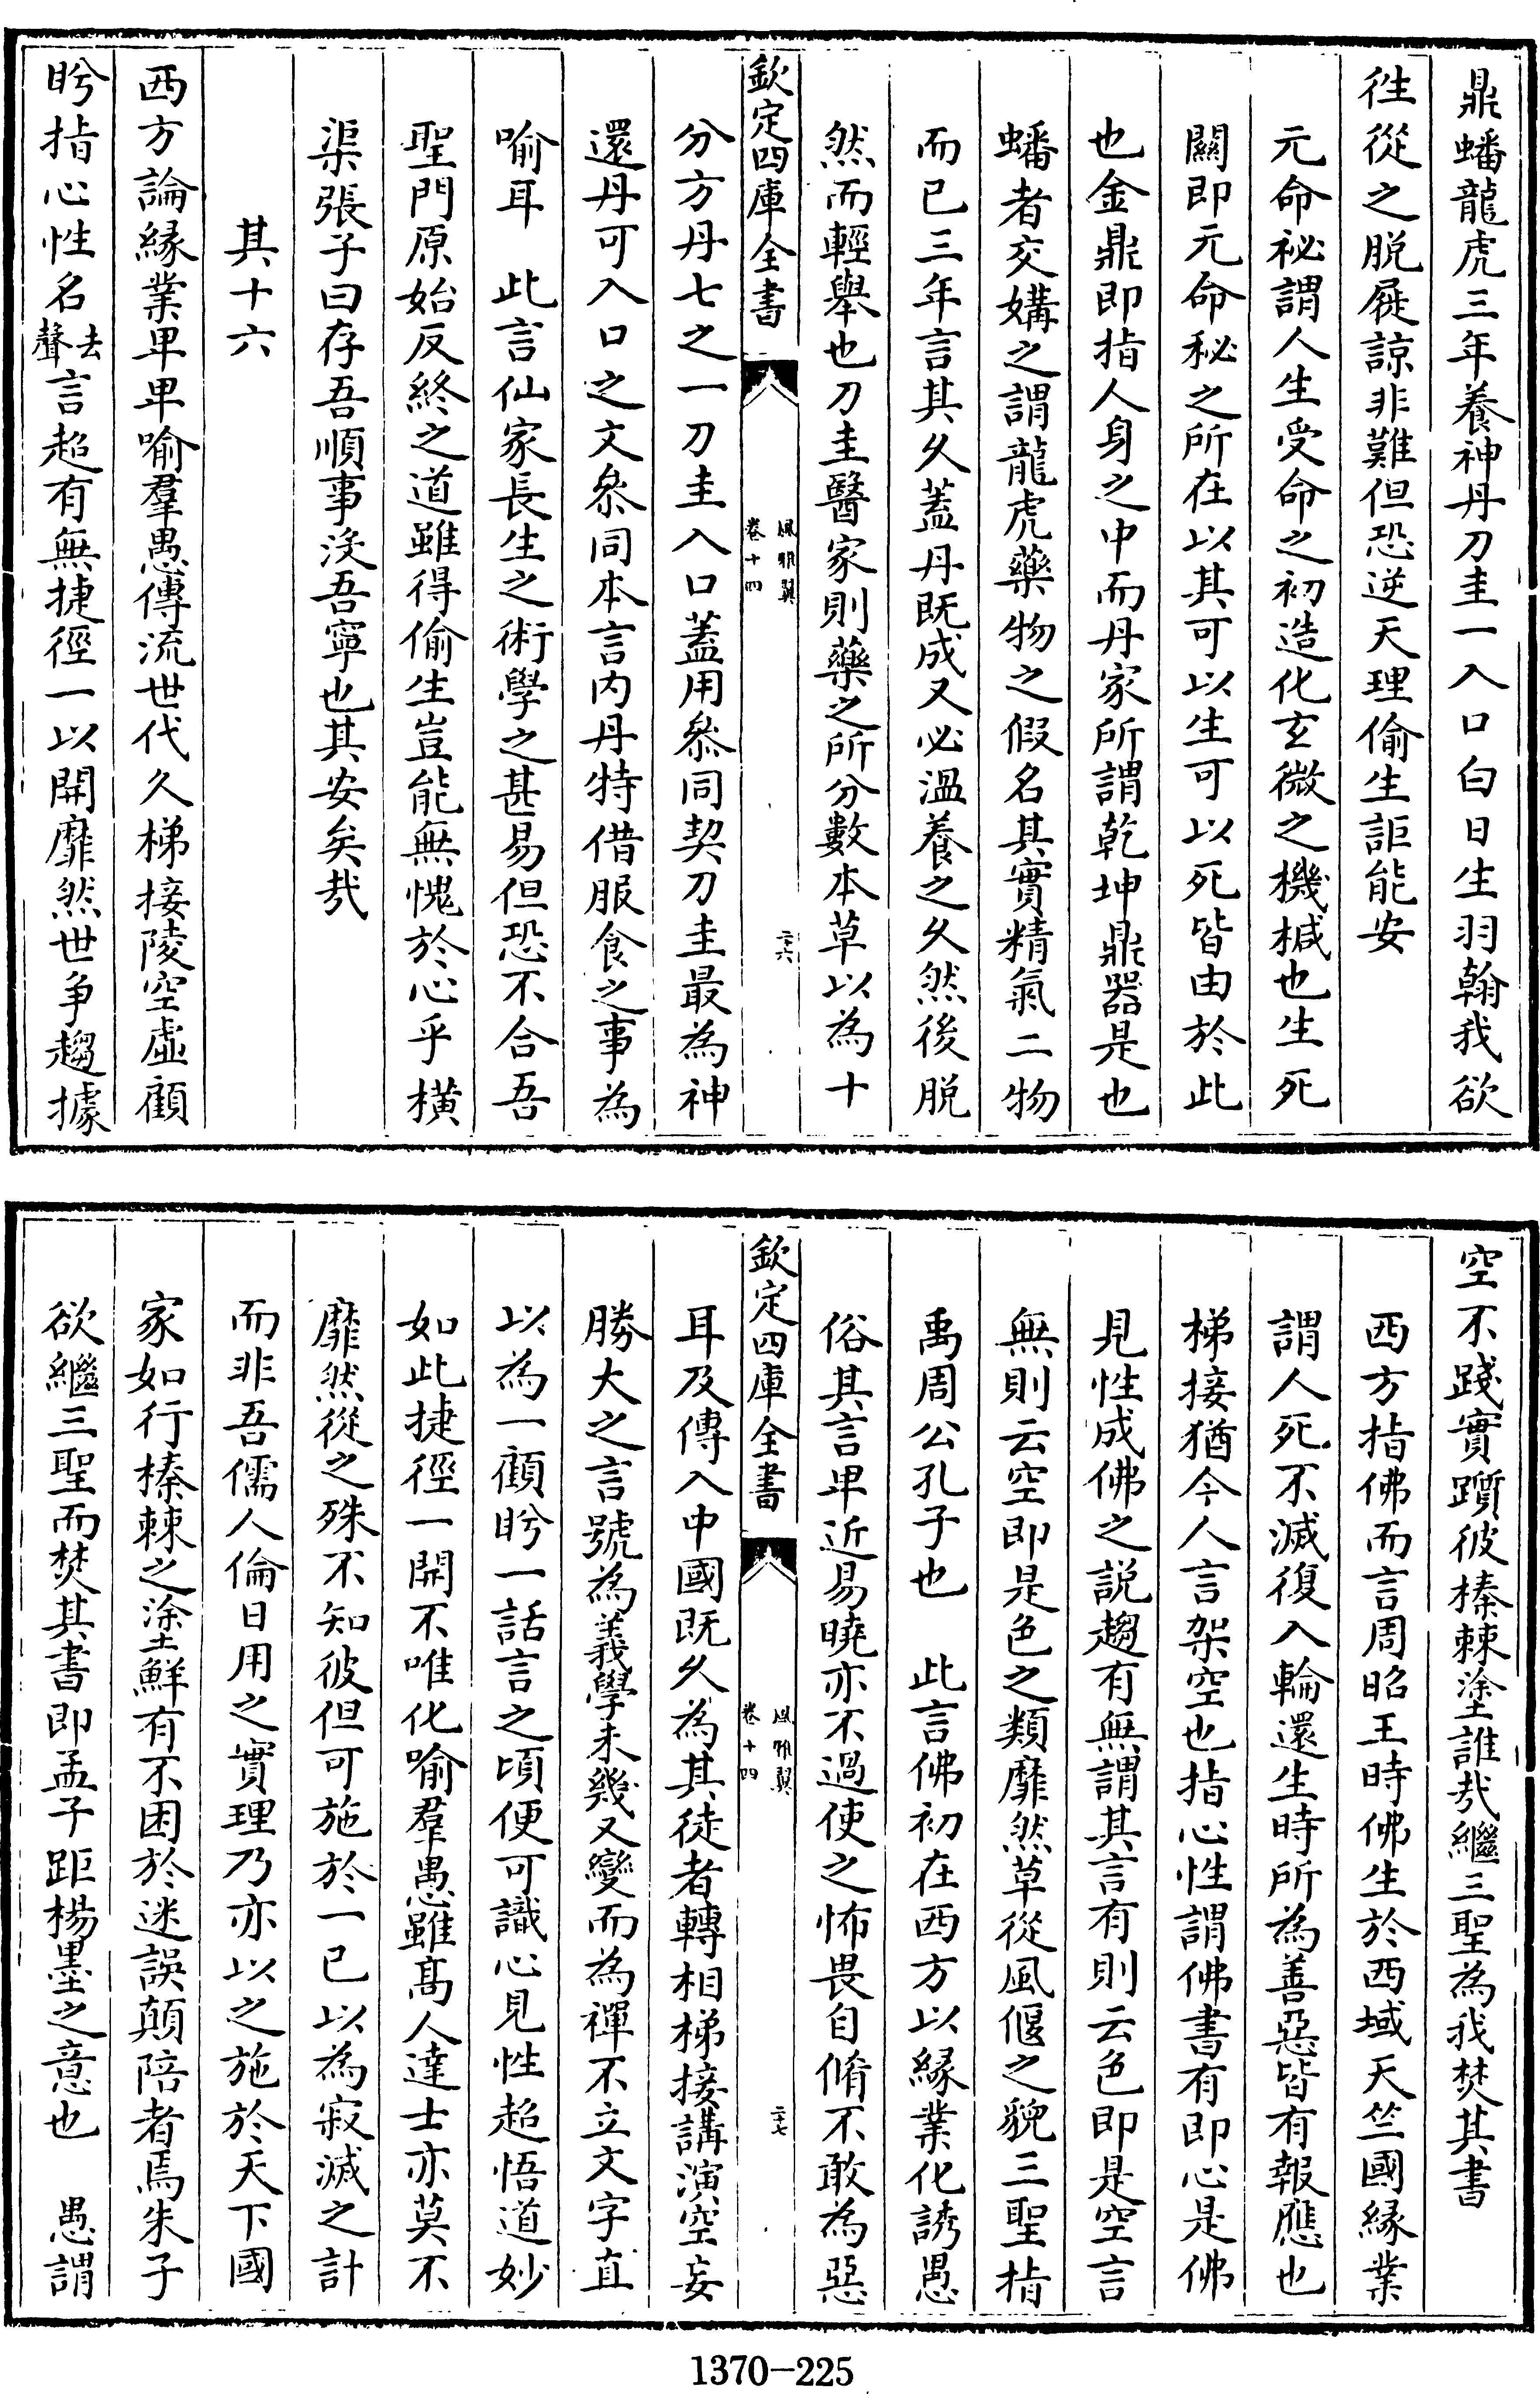 鼎蟠龍虎三年養神丹刀圭一入口白日生羽翰我欲
徃從之脱屣諒非難但恐逆天理偷生詎能安
元命祕謂人生受命之初造化玄微之機椷也生死
關即元命秘之所在以其可以生可以死皆由於此
也金鼎即指人身之中而丹家所謂乾坤鼎器是也
蟠者交媾之謂龍虎藥物之假名其實精氣二物
而已三年言其久蓋丹既成又必温養之久然後脱
然而輕舉也刀圭醫家則藥之所分數本草以為十
欽定四庫全書
風雅翼
卷十四
二十六
分方丹七之一刀圭入口蓋用叅同契刀圭最為神
還丹可入口之文叅同本言内丹特借服食之事為
喻耳　此言仙家長生之術學之甚易但恐不合吾
聖門原始反終之道雖得偷生豈能無愧於心乎橫
渠張子曰存吾順事没吾寧也其安矣哉
其十六
西方論縁業卑卑喻羣愚傳流世代久梯接陵空虛顧
盻指心性名去聲言超有無捷徑一以開靡然世争趨據
空不踐實躓彼榛棘塗誰哉繼三聖為我焚其書
西方指佛而言周昭王時佛生於西域天竺國縁業
謂人死不滅復入輪還生時所為善惡皆有報應也
梯接猶今人言架空也指心性謂佛書有即心是佛
見性成佛之説趨有無謂其言有則云色即是空言
無則云空即是色之類靡然草從風偃之貌三聖指
禹周公孔子也　此言佛初在西方以縁業化誘愚
俗其言卑近易曉亦不過使之怖畏自脩不敢為惡
欽定四庫全書
風雅翼
卷十四
二十七
耳及傳入中國既久為其徒者轉相梯接講演空妄
勝大之言號為義學未幾又變而為禪不立文字直
以為一顧盻一話言之頃便可識心見性超悟道妙
如此捷徑一開不唯化喻羣愚雖髙人達士亦莫不
靡然從之殊不知彼但可施於一已以為寂滅之計
而非吾儒人倫日用之實理乃亦以之施於天下國
家如行榛棘之塗鮮有不困於迷誤顛踣者焉朱子
欲繼三聖而焚其書即孟子距楊墨之意也　愚謂
1370-225